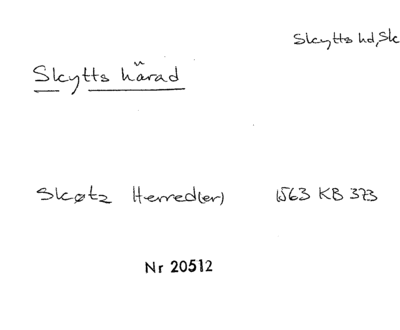 Skytts hd, Sk
Skytts härad
Skøtz Herred(er) 1563 KB 373
Nr 20512